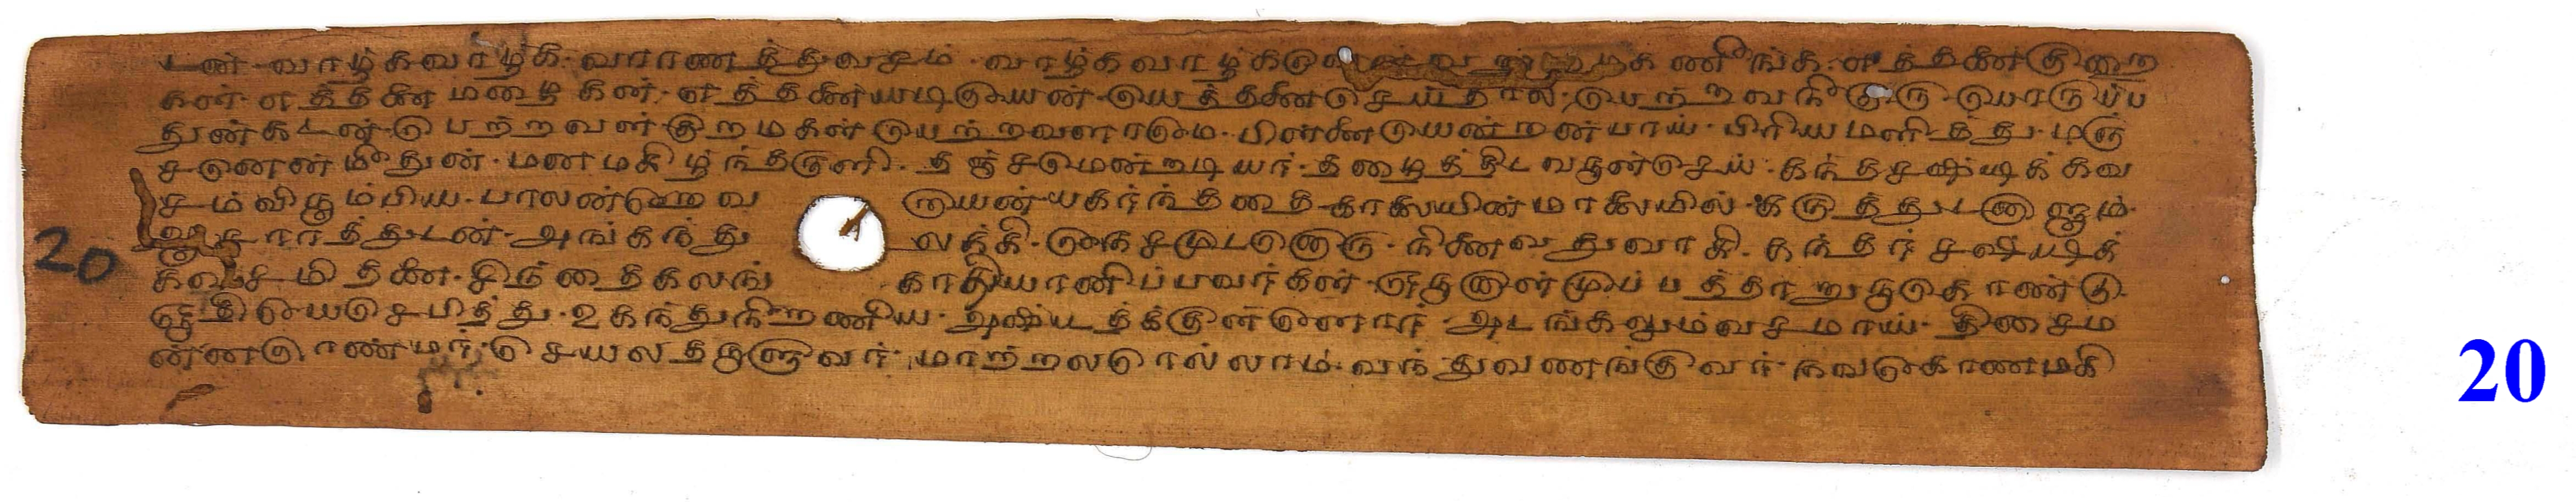 டன் வாழ்க வாழ்க வாரணத்துவசம் வாழ்க வாழ்க நீங்க எத்தனை குறை
கள் எத்தனை பிழைகள் எத்தனையடியேன் யெத்தனை செய்தால் பெற்றவநீ குரு பொருப்ப
துன்கடன் பெற்றவள் குறமகள் பெற்றவளாமே பிள்ளையென்றன்பாய் பிரியமளித்து மரு
சனென்மீதுன் மனமகிழ்ந்தருளி தஞ்சமென்றடியார் தழைத்திட வருள்செய் கந்தசஷ்டிக்கவ
சம்விரும்பிய பாலன்தேவ ராயன் பகர்ந்ததை காலையின்மாலையில் கருத்துடனாளும்
ஆசாரத்துடன் அங்கந்து லக்கி நேசமுடனொரு நினைவதுவாகி கந்தர் சஷ்டிக்
கவசமிதனை சிந்தைகலங் காதியானிப்பவர்கள் ஒருநாள்முப்பத்தாறுருகொண்டு
ஓதியெசெபித்து உகந்துநீறணிய அஷ்டதிக்குள்ளோர் அடங்கலும்வசமாய் திசைம
ன்னரெண்மர் செயலதருளுவர் மாற்றலரெல்லாம் வந்துவணங்குவர் நவகோணமகி
20
20